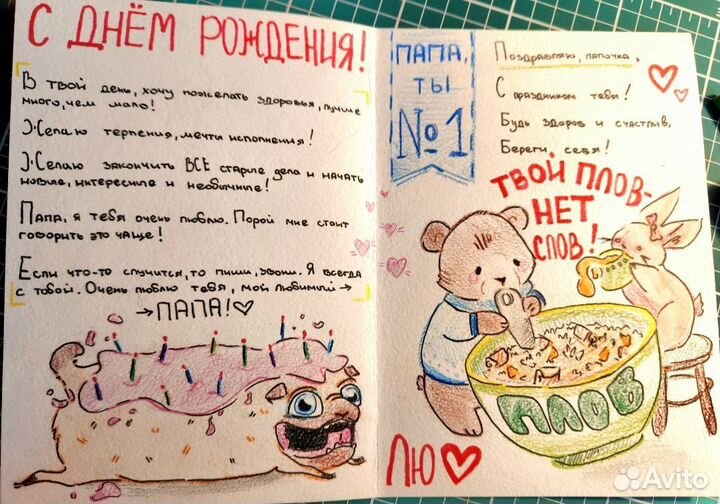 С ДНЁМ РОЖДЕНИЯ!
В твой день, хочу пожелать здоровья, лучше
много, чем мало!
Желаю терпения, мечты исполнения!
Желаю закончить ВСЕ старые дела и начать
новые, интересные и необычные!
Папа, я тебя очень люблю. Порой мне стоит
говорить это чаще!
Если что-то случится, то пиши, звони. Я всегда
с тобой. Очень люблю тебя, мой любимый →
→ ПАПА!♡
ПАПА,
ТЫ
№1
Поздравляю, папочка,
С праздником тебя!
Будь здоров и счастлив,
Береги себя!
ТВОЙ ПЛОВ-
НЕТ
СЛОВ!
ПЛОВ
ЛЮ♡
Avito